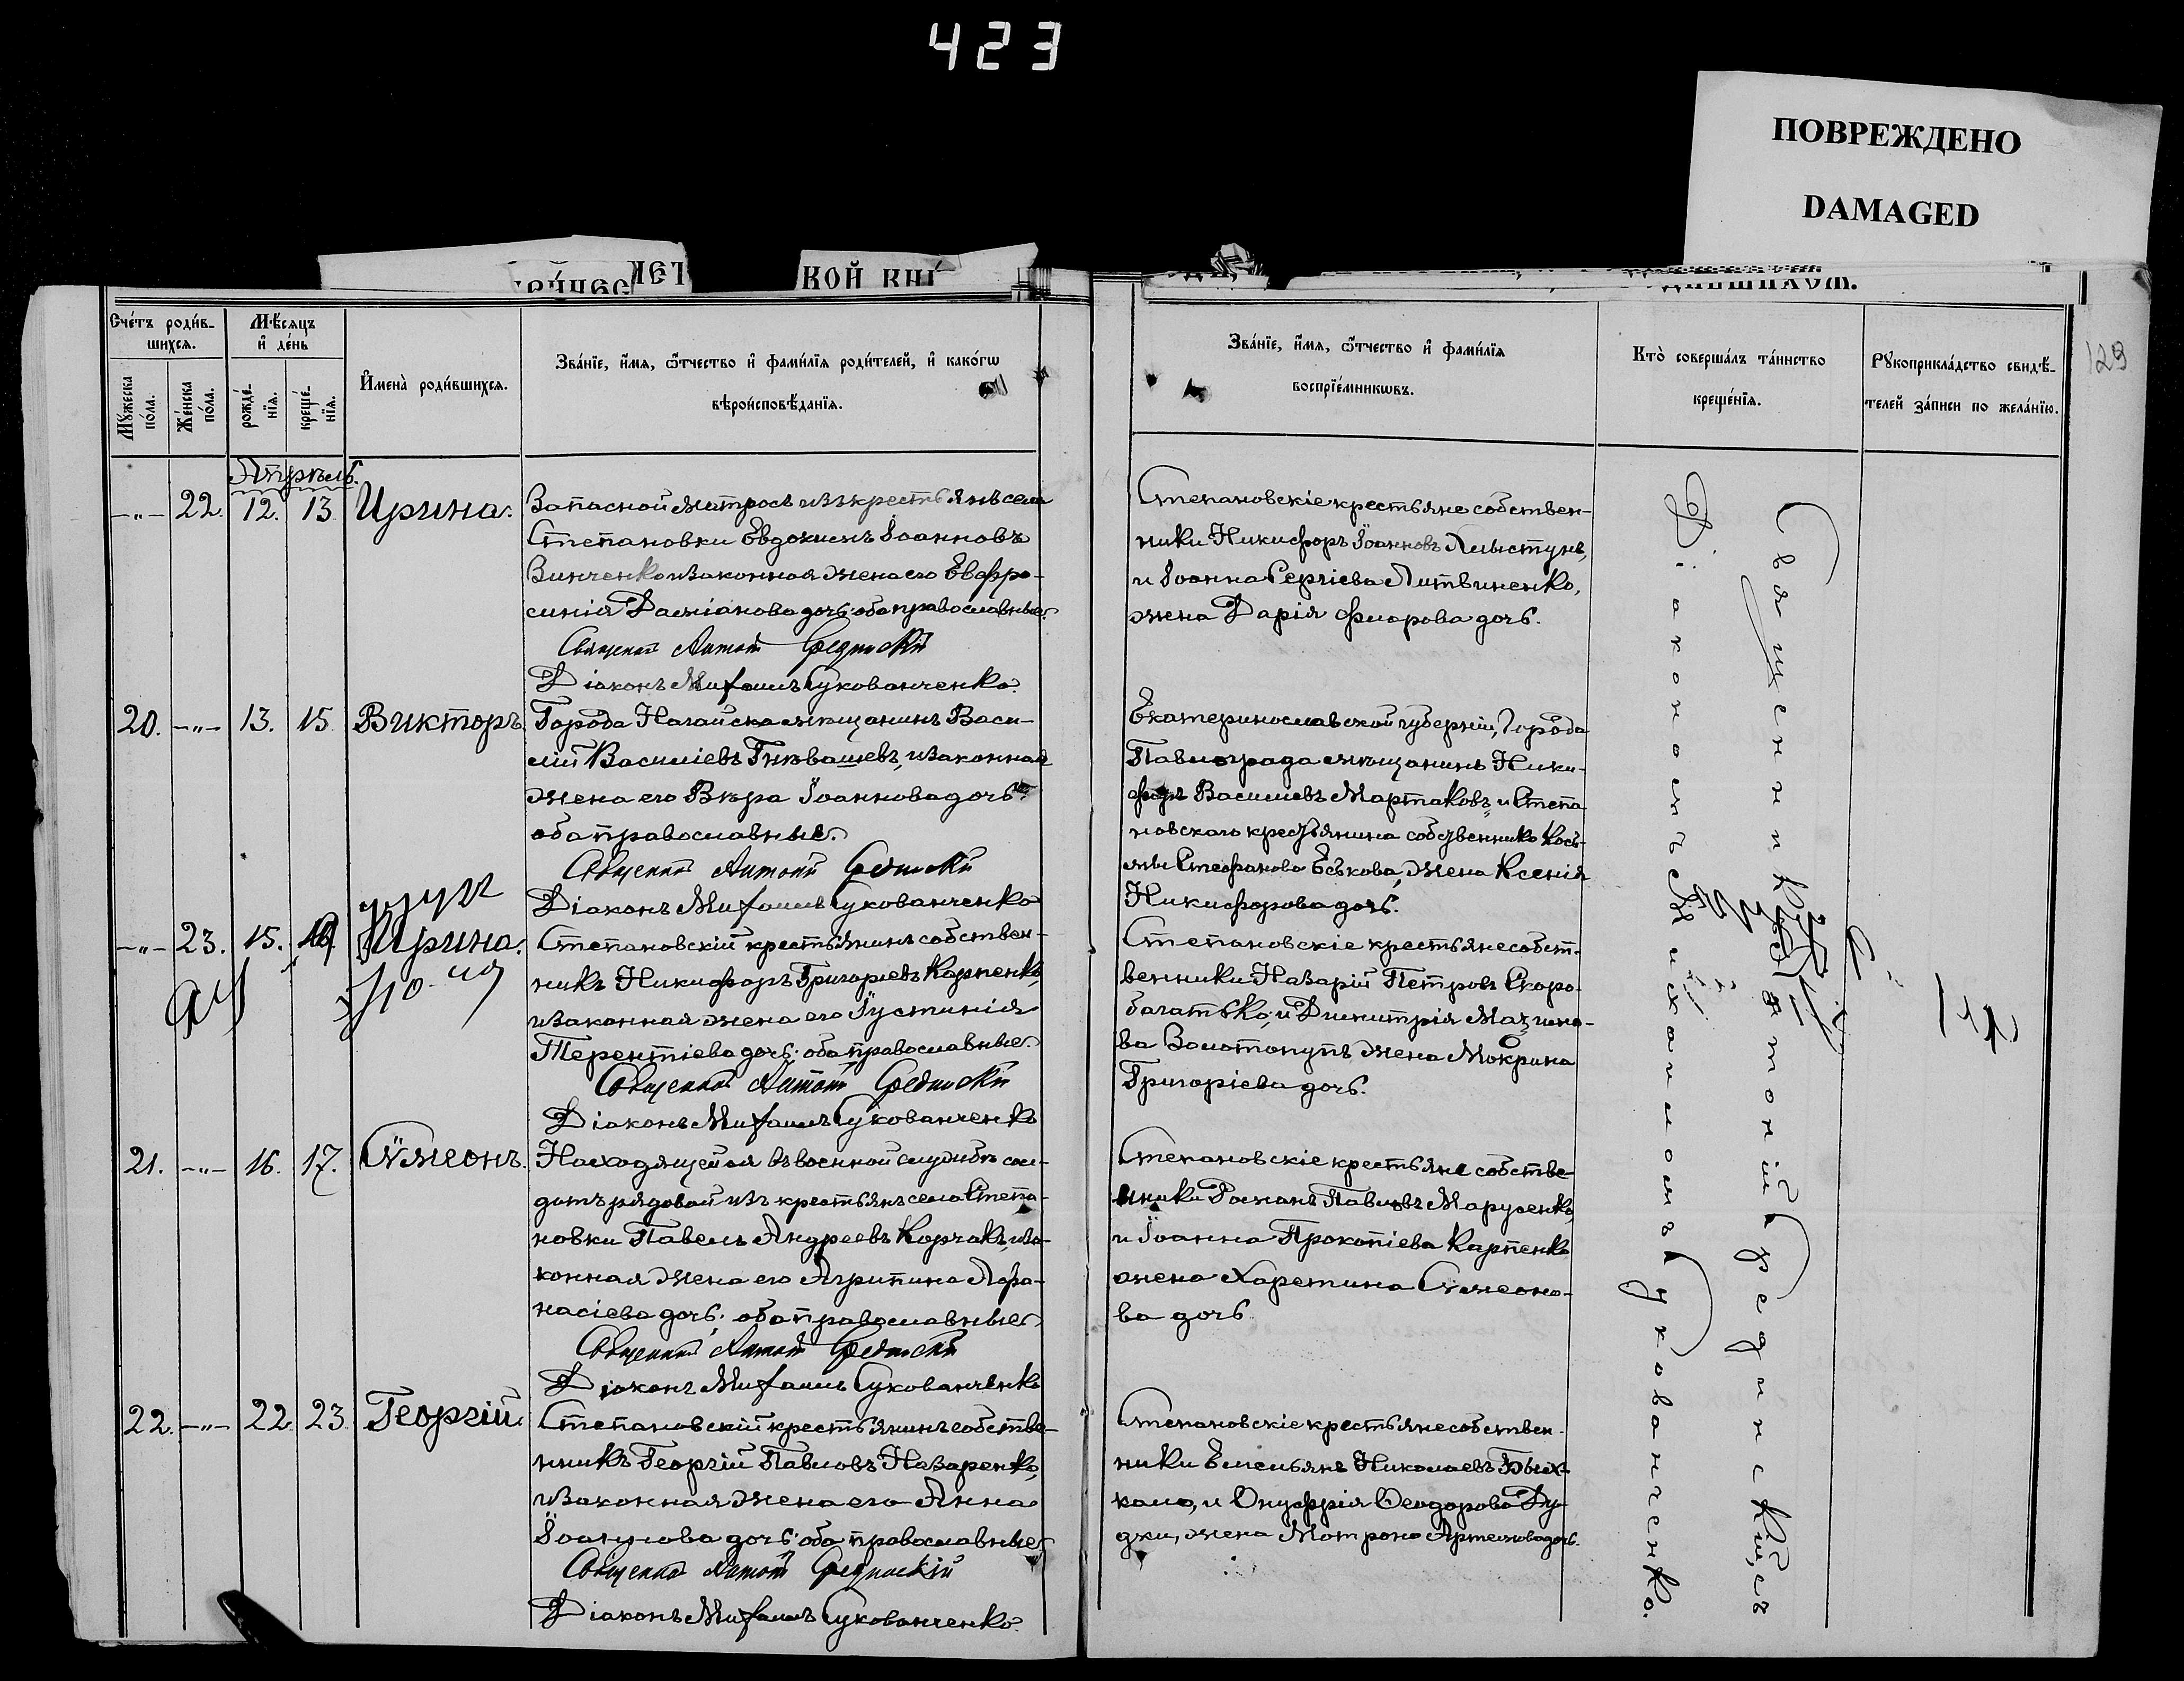 423
ПОВРЕЖДЕНО
DAMAGED
КОЙ КНИ
Сче́тъ роди́в-
шихся.
Мѣ́сяцъ
и҆ де́нь
Мꙋ́жеска по́ла.
Же́нска по́ла.
рожде́-
нїя.
креще́-
нїя.
И҆мена̀ роди́вшихся.
Зва́нїе, и҆́мя, ѻ҆́тчество и҆ фамѝлїя роди́телей, и҆ како́гѡ
вѣроисповѣ́данїя.
Зва́нїе, и҆́мя, ѻ҆́тчество и҆ фами́лїя
воспрїе́мникѡвъ.
Кто̀ соверша́лъ та́инство
креще́нїя.
Рꙋкоприкла́дство свидѣ́-
телей за́писи по жела́нїю.
129
Апрѣль.
-"- 22. 12. 13. Ирина.
Запасной матросъ изъ крестьянъ села
Степановки Евдокимъ Іоанновъ
Винченко и законная жена его Евфро-
синія Даміанова дочь; оба православные.
Священникъ Антоній Срединскій
Діаконъ Михаилъ Сукованченко.
Степановскіе крестьяне собствен-
ники Никифоръ Іоанновъ Хлыстунъ,
и Іоанна Сергіева Литвиненко,
жена Дарія Фларова дочь.
20. -"- 13. 15. Викторъ.
Города Нагайска мѣщанинъ Васи-
лій Василіевъ Гнѣвашевъ, и законная
жена его Вѣра Іоаннова дочь;
оба православные.
Священникъ Антоній Срединскій
Діаконъ Михаилъ Сукованченко
Екатеринославской губерніи, города
Павлограда мѣщанинъ Ники-
форъ Василіевъ Мартаковъ, и Степа-
новскаго крестьянина собственника Кось-
мы Стефанова Еськова, жена Ксенія
Никифорова дочь.
-"- 23. 15. Ирина.
Степановскій крестьянинъ собствен-
никъ Никифоръ Григорьевъ Карпенко,
и законная жена его Іустинія
Терентіева дочь; оба православные.
Священникъ Антоній Срединскій
Діаконъ Михаилъ Сукованченко
Степановскіе крестьяне собст-
венники Назарій Петровъ Скоро-
багатько, и Димитрія Максимо-
ва Золотопупъ, жена Мокрина
Григоріева дочь.
21. -"- 16. 17. Сѵмеонъ.
Находящейся въ военной службѣ сол-
датъ рядовой изъ крестьянъ села Степа-
новки Павелъ Андреевъ Корчакъ, и за-
конная жена его Агрипина Афа-
насіева дочь; оба православные.
Священникъ Антоній Срединскій
Діаконъ Михаилъ Сукованченко
Степановскіе крестьяне собстве-
нники Романъ Павловъ Марусенко,
и Іоанна Прокопіева Карпенко
жена Харетина Сѵмеоно-
ва дочь
22. -"- 22. 23. Георгій.
Степановскій крестьянинъ собстве-
нникъ Георгій Павловъ Назаренко,
и законная жена его Анна
Іоаннова дочь; оба православные.
Священникъ Антоній Срединскій
Діаконъ Михаилъ Сукованченко.
Степановскіе крестьяне собствен-
ники Емельянъ Николаевъ Бых-
кало, и Онуфрія Ѳеодорова Ду-
дки, жена Матрона Артемова дочь.
Священникъ Антоній Срединскій, съ
Діакономъ Михаиломъ Сукованченко.